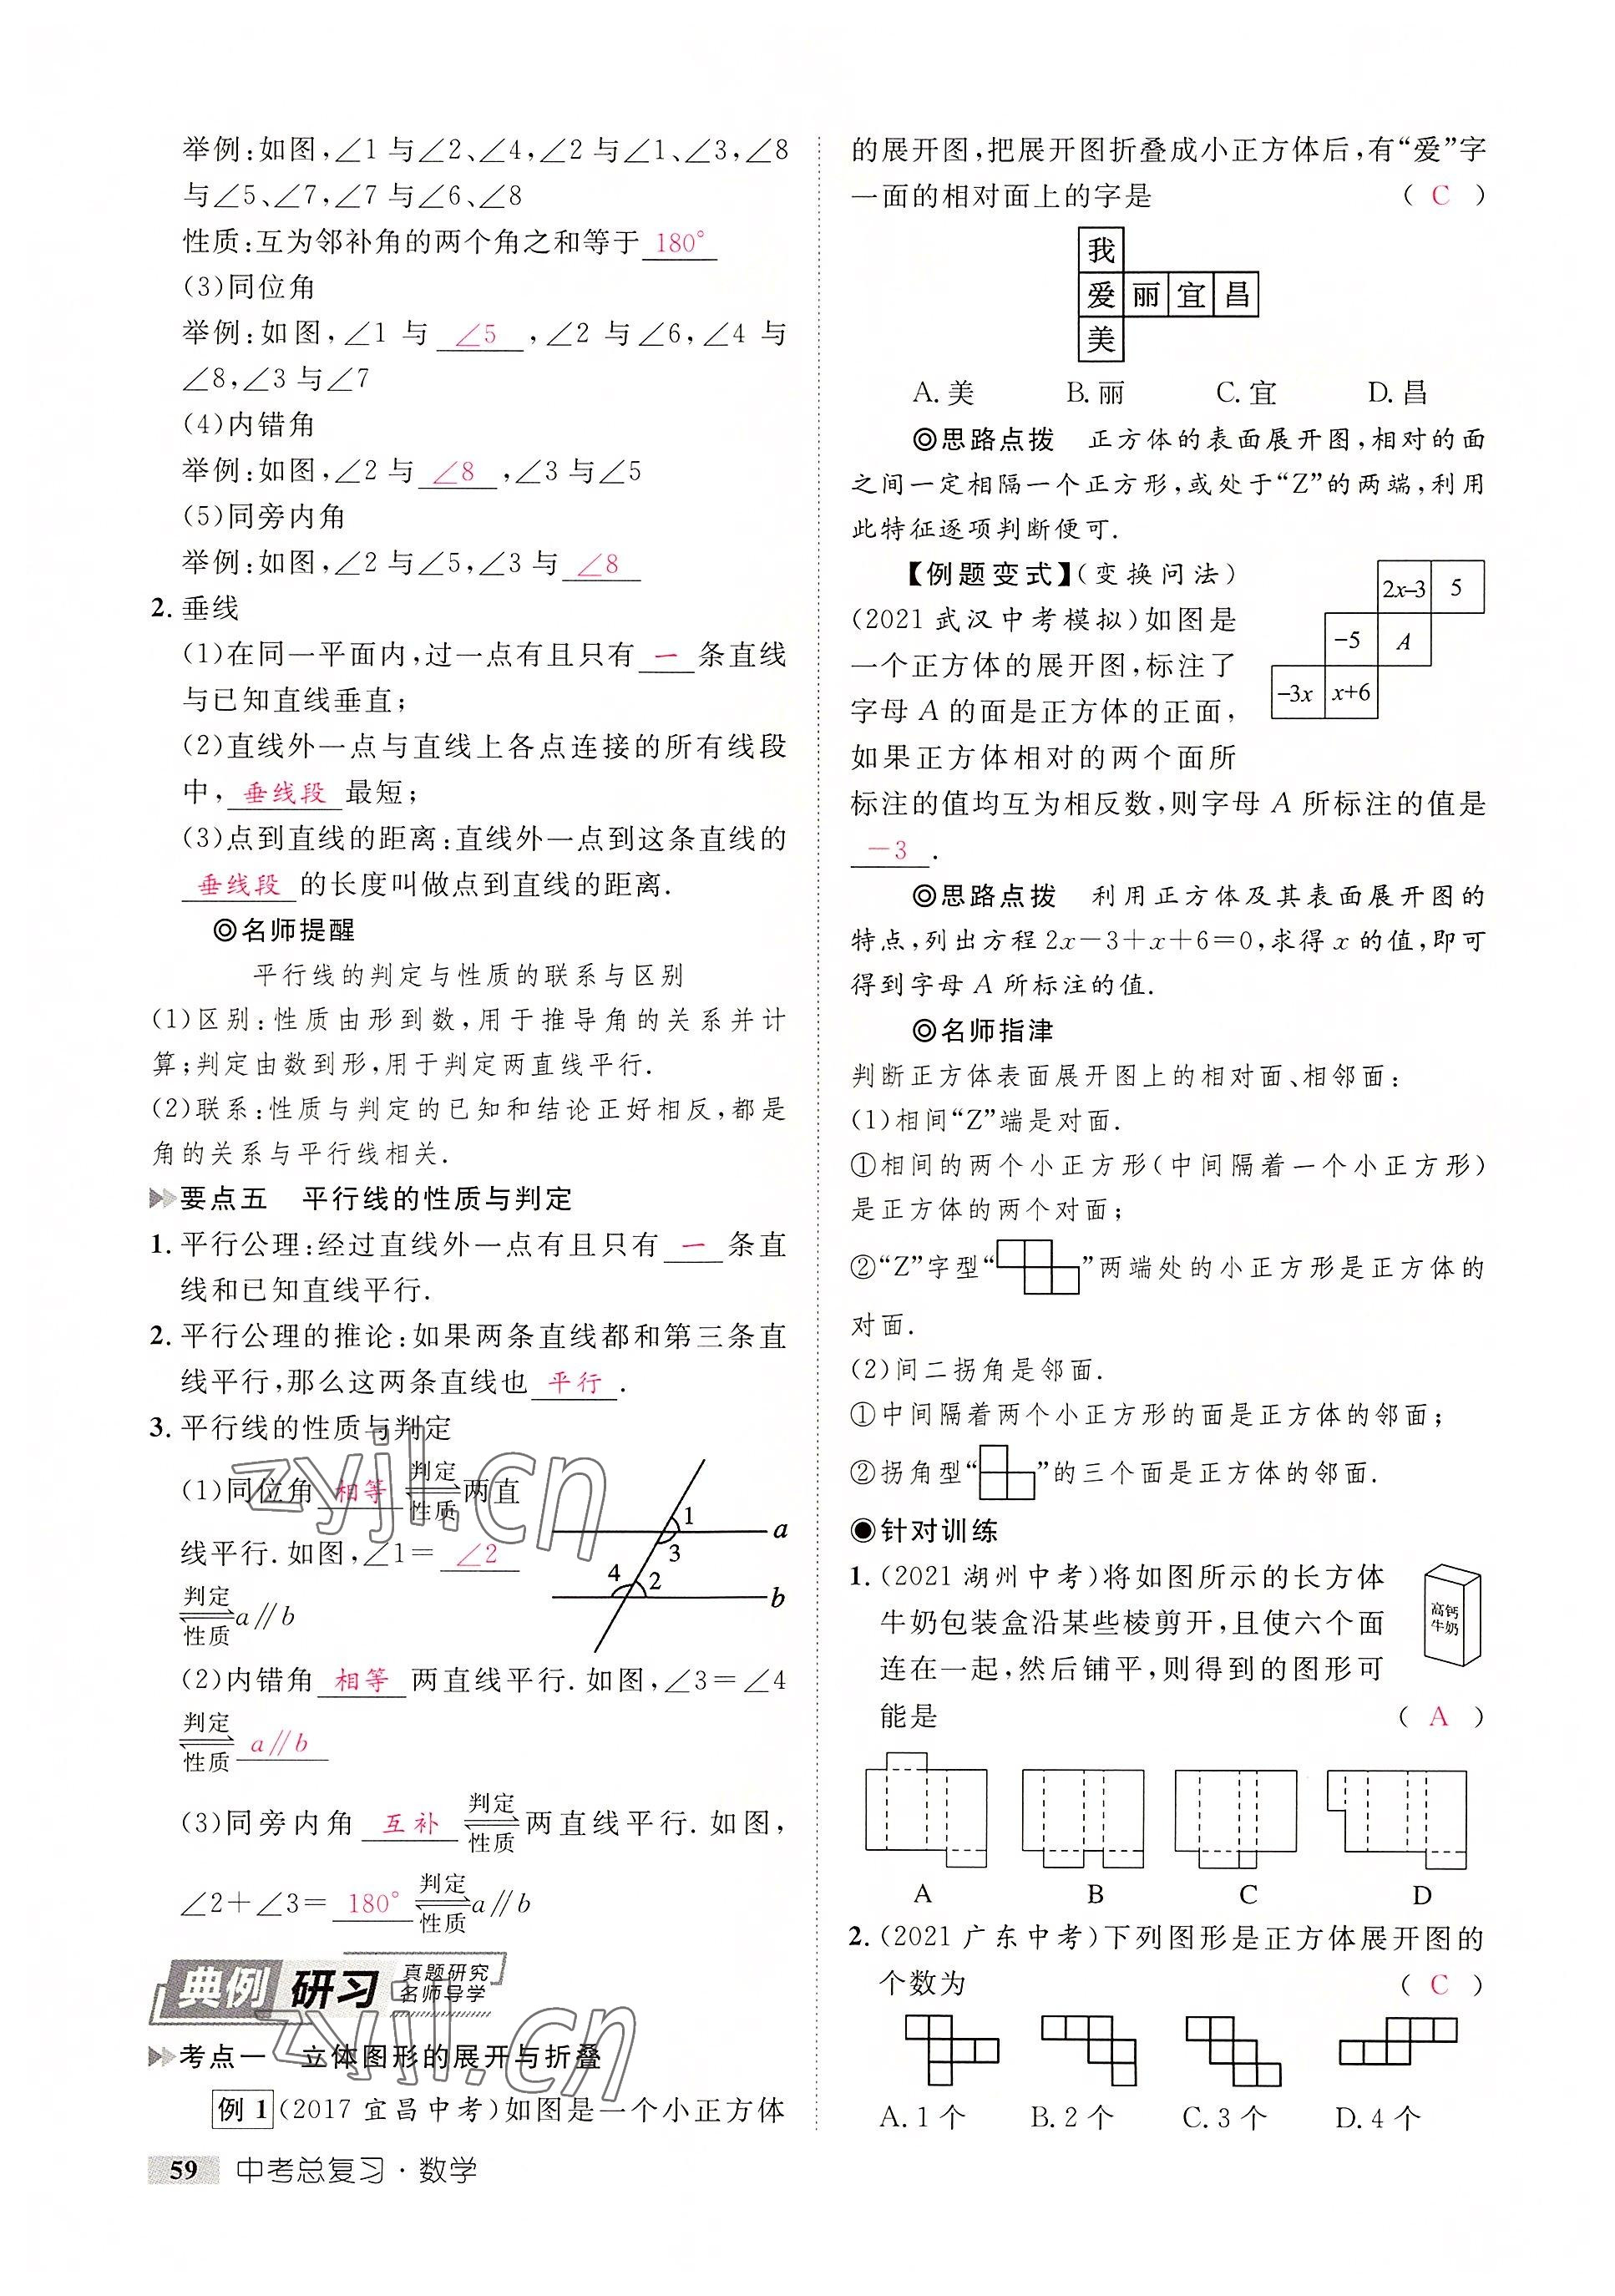 举例:如图,∠1与∠2、∠4,∠2与∠1、∠3,∠8
与∠5、∠7,∠7与∠6、∠8
性质:互为邻补角的两个角之和等于 180°
(3)同位角
举例:如图,∠1 与 ∠5 ,∠2 与∠6,∠4 与
∠8,∠3 与∠7
(4)内错角
举例:如图,∠2 与 ∠8 ,∠3 与∠5
(5)同旁内角
举例:如图,∠2 与∠5,∠3 与 ∠8
2. 垂线
(1)在同一平面内,过一点有且只有 一 条直线
与已知直线垂直;
(2)直线外一点与直线上各点连接的所有线段
中, 垂线段 最短;
(3)点到直线的距离:直线外一点到这条直线的
垂线段 的长度叫做点到直线的距离.
◎名师提醒
平行线的判定与性质的联系与区别
(1)区别:性质由形到数,用于推导角的关系并计
算;判定由数到形,用于判定两直线平行.
(2)联系:性质与判定的已知和结论正好相反,都是
角的关系与平行线相关.
要点五 平行线的性质与判定
1. 平行公理:经过直线外一点有且只有 一 条直
线和已知直线平行.
2. 平行公理的推论:如果两条直线都和第三条直
线平行,那么这两条直线也 平行 .
3. 平行线的性质与判定
(1)同位角 相等 判定 性质 两直
线平行. 如图,∠1= ∠2
判定 性质 a∥b
1 3 a
4 2 b
(2)内错角 相等 两直线平行. 如图,∠3=∠4
判定 性质 a∥b
(3)同旁内角 互补 判定 性质 两直线平行. 如图,
∠2+∠3= 180° 判定 性质 a∥b
典例 研习 真题研究 名师导学
考点一 立体图形的展开与折叠
例 1 (2017 宜昌中考)如图是一个小正方体
59 中考总复习·数学
的展开图,把展开图折叠成小正方体后,有“爱”字
一面的相对面上的字是 ( C )
我
爱 丽 宜 昌
美
A. 美 B. 丽 C. 宜 D. 昌
◎思路点拨 正方体的表面展开图,相对的面
之间一定相隔一个正方形,或处于“Z”的两端,利用
此特征逐项判断便可.
【例题变式】(变换问法)
(2021 武汉中考模拟)如图是
一个正方体的展开图,标注了
字母 A 的面是正方体的正面,
如果正方体相对的两个面所
标注的值均互为相反数,则字母 A 所标注的值是
-3 .
2x-3 5
-5 A
-3x x+6
◎思路点拨 利用正方体及其表面展开图的
特点,列出方程 2x-3+x+6=0,求得 x 的值,即可
得到字母 A 所标注的值.
◎名师指津
判断正方体表面展开图上的相对面、相邻面:
(1)相间“Z”端是对面.
①相间的两个小正方形(中间隔着一个小正方形)
是正方体的两个对面;
②“Z”字型“ ”两端处的小正方形是正方体的
对面.
(2)间二拐角是邻面.
①中间隔着两个小正方形的面是正方体的邻面;
②拐角型“ ”的三个面是正方体的邻面.
◉针对训练
1. (2021 湖州中考)将如图所示的长方体
牛奶包装盒沿某些棱剪开,且使六个面
连在一起,然后铺平,则得到的图形可
能是 ( A )
高钙
牛奶
A B C D
2. (2021 广东中考)下列图形是正方体展开图的
个数为 ( C )
A. 1 个 B. 2 个 C. 3 个 D. 4 个
zyjl.cn
zyjl.cn